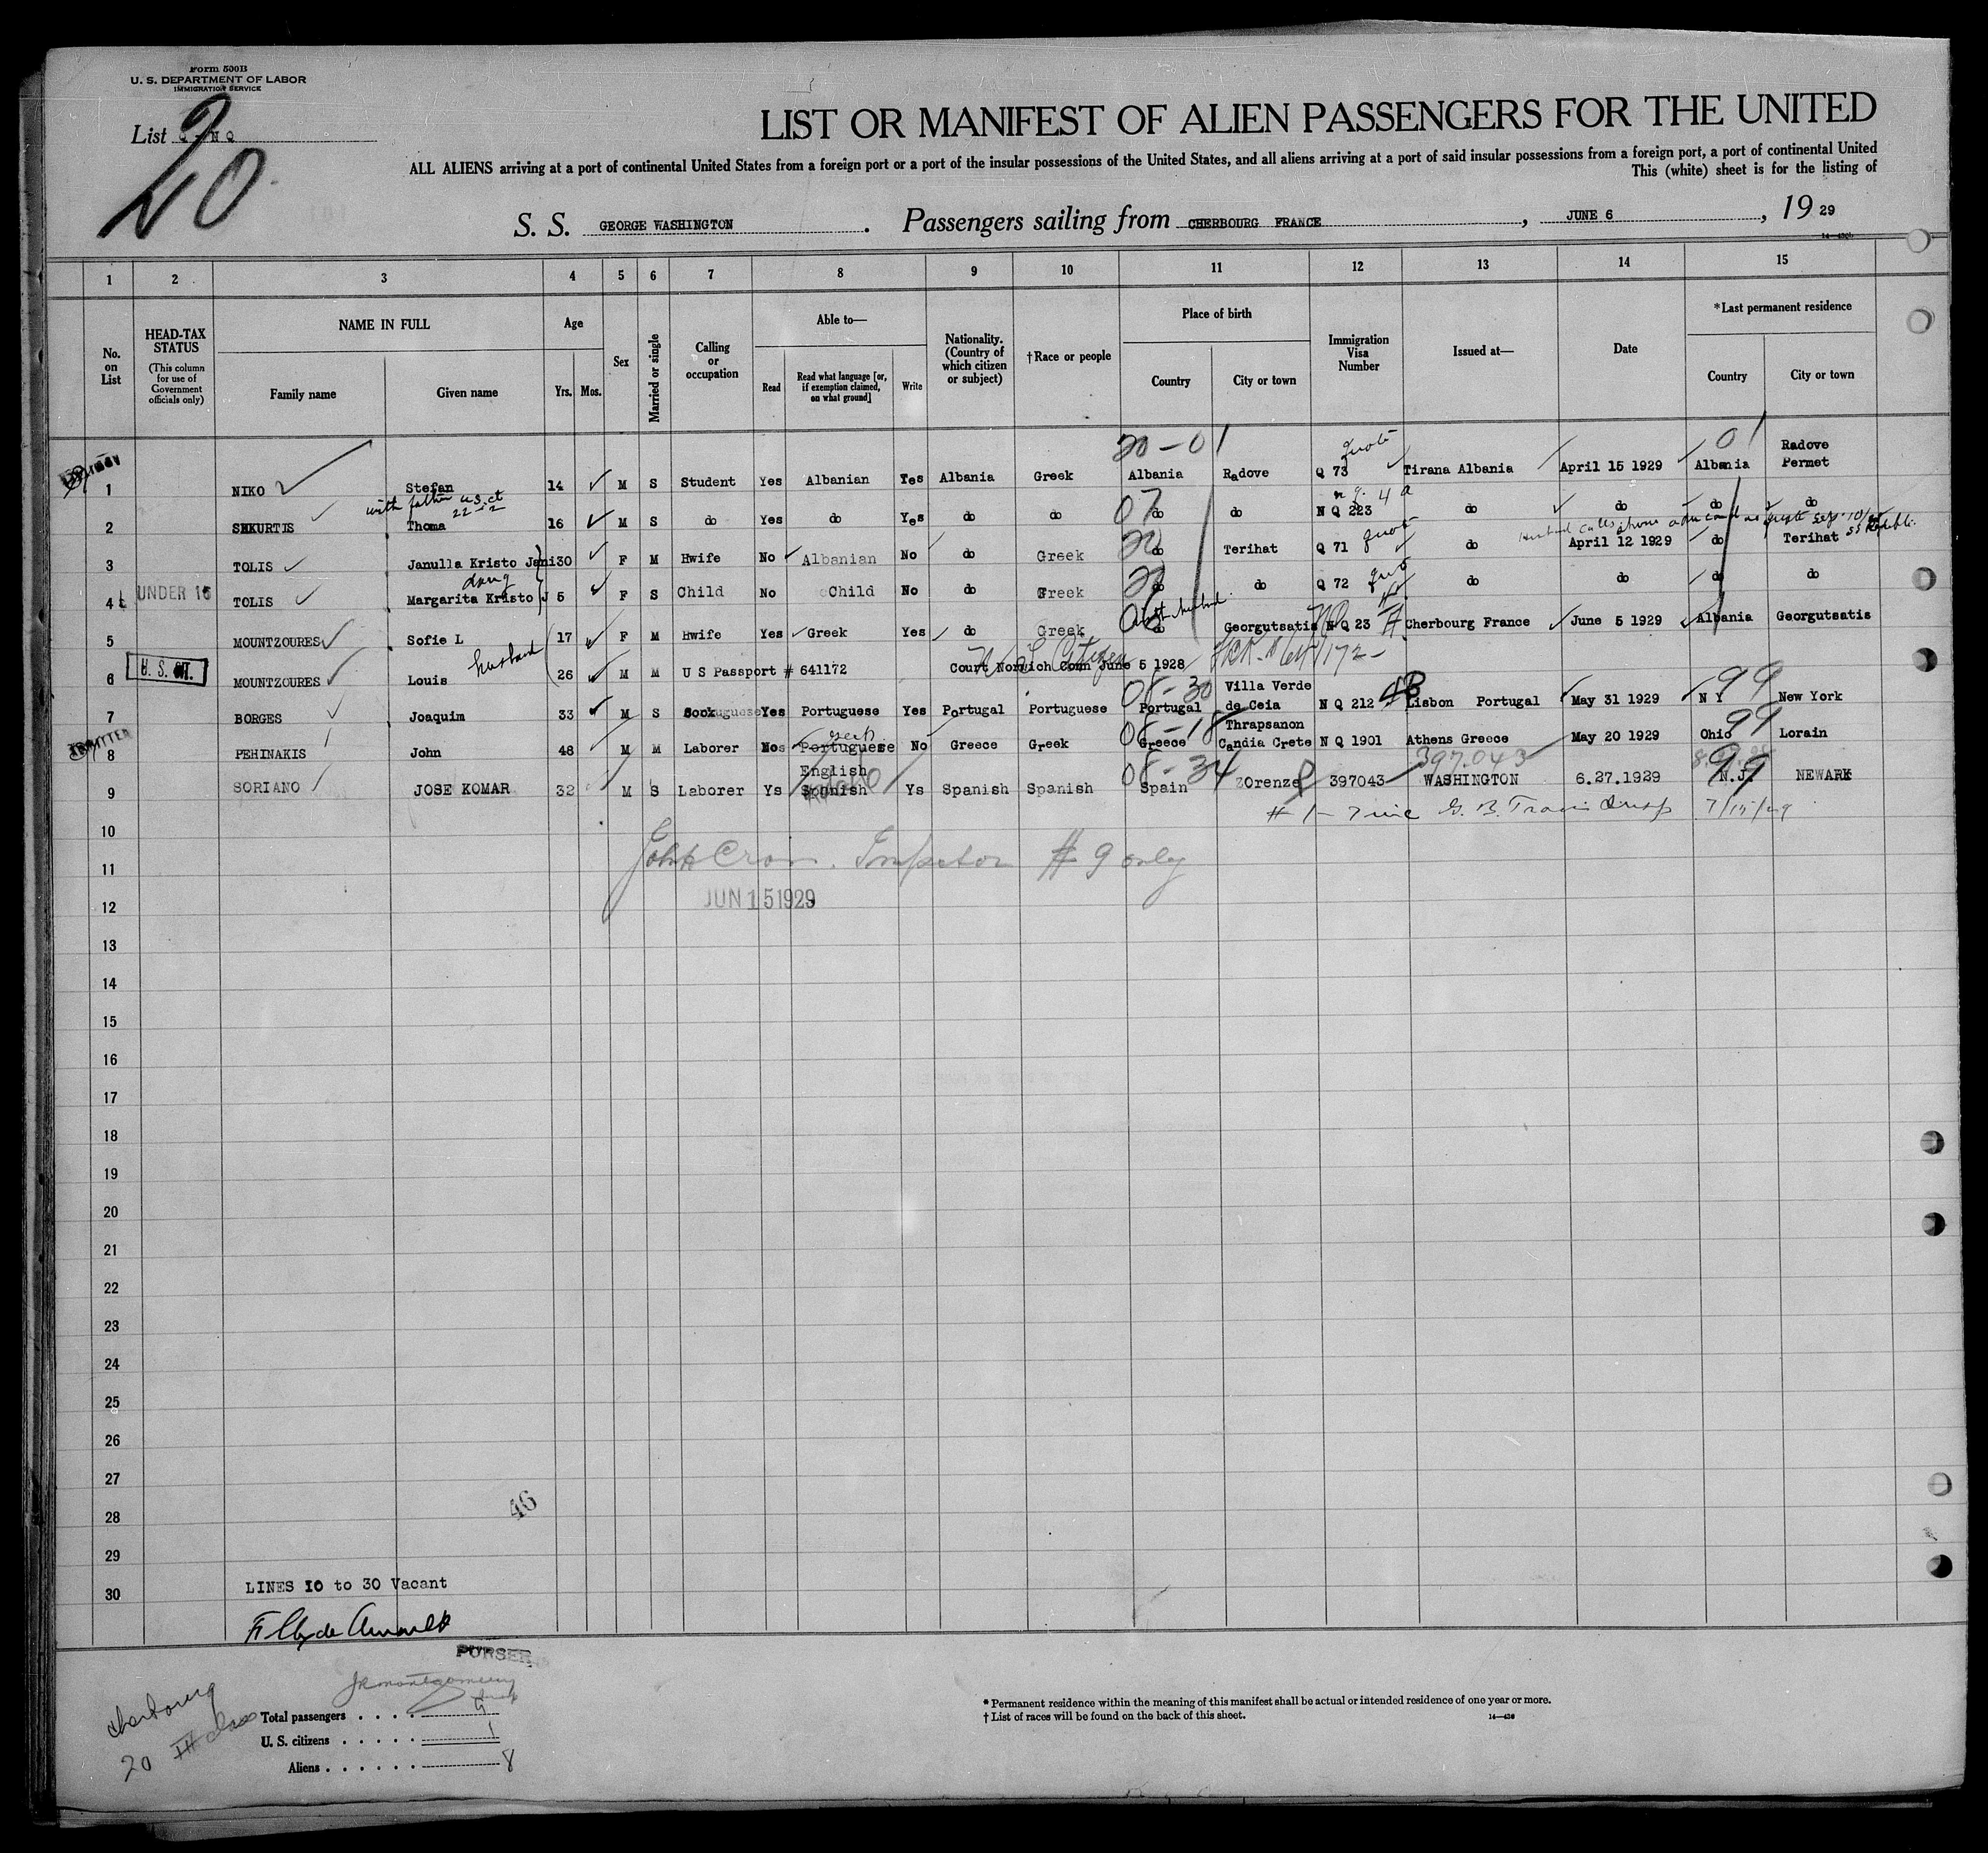 Form 500B
U. S. DEPARTMENT OF LABOR
IMMIGRATION SERVICE
List Q - N Q
20
LIST OR MANIFEST OF ALIEN PASSENGERS FOR THE UNITED
ALL ALIENS arriving at a port of continental United States from a foreign port or a port of the insular possessions of the United States, and all aliens arriving at a port of said insular possessions from a foreign port, a port of continental United
This (white) sheet is for the listing of
S. S. GEORGE WASHINGTON . Passengers sailing from CHERBOURG FRANCE , JUNE 6 , 19 29
1 2 3 4 5 6 7 8 9 10 11 12 13 14 15
No. on List
HEAD-TAX STATUS
(This column for use of Government officials only)
NAME IN FULL
Family name Given name
Age
Yrs. Mos.
Sex
Married or single
Calling or occupation
Able to—
Read Read what language [or, if exemption claimed, on what ground] Write
Nationality. (Country of which citizen or subject)
†Race or people
Place of birth
Country City or town
Immigration Visa Number
Issued at—
Date
*Last permanent residence
Country City or town
20-01 quota 01
1 NIKO Stefan 14 M S Student Yes Albanian Yes Albania Greek Albania Radove Q 73 Tirana Albania April 15 1929 Albania Radove Permet
with father U.S. ct
22-12 07 4 a
2 SHKURTIS Thoma 16 M S do Yes do Yes do do do do N Q 223 do do do do
20 quota
3 TOLIS Janulla Kristo Jani 30 F M Hwife No Albanian No do Greek do Terihat Q 71 do April 12 1929 do Terihat
daug
4 UNDER 16 TOLIS Margarita Kristo J 5 F S Child No Child No do Greek do do Q 72 do do do do
5 MOUNTZOURES Sofie L 17 F M Hwife Yes Greek Yes do Greek do Georgutsatis N Q 23 Cherbourg France June 5 1929 Albania Georgutsatis
husband U S Citizen
6 U. S. CIT. MOUNTZOURES Louis 26 M M U S Passport # 641172 Court Norwich Conn June 5 1928
08-30 99
7 BORGES Joaquim 33 M S Yes Portuguese Yes Portugal Portuguese Portugal Villa Verde de Ceia N Q 212 Lisbon Portugal May 31 1929 N Y New York
08-18 99
8 PEHINAKIS John 48 M M Laborer No Portuguese No Greece Greek Greece Thrapsanon Candia Crete N Q 1901 Athens Greece May 20 1929 Ohio Lorain
08-34 397.043 99
9 SORIANO JOSE KOMAR 32 M S Laborer Ys English Spanish Ys Spanish Spanish Spain Orenze 397043 WASHINGTON 6.27.1929 N.J. NEWARK
7/15/29
10
11 Inspector # 9 only
12 JUN 15 1929
13
14
15
16
17
18
19
20
21
22
23
24
25
26
27
28 46
29
30 LINES 10 to 30 Vacant
PURSER
JR Montgomery
Cherbourg
20 III class
Total passengers . . . . 9
U. S. citizens . . . . . 1
Aliens . . . . . . 8
* Permanent residence within the meaning of this manifest shall be actual or intended residence of one year or more.
† List of races will be found on the back of this sheet.
14—436